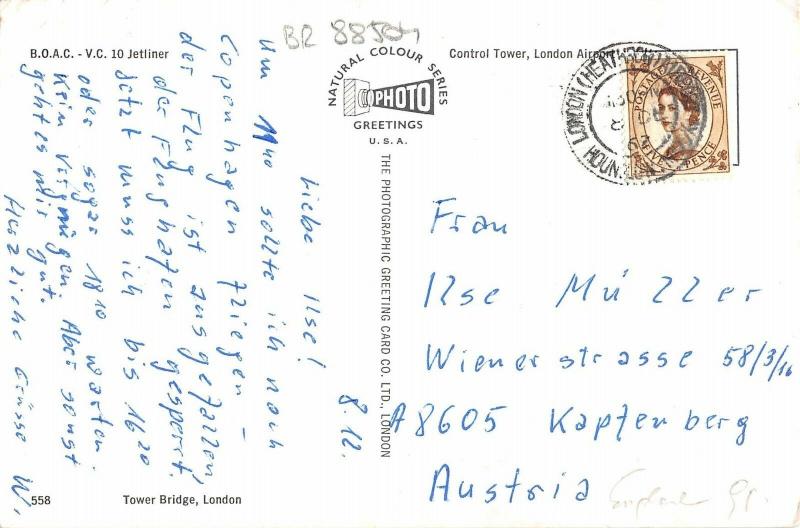 BR 88504
B.O.A.C. - V.C. 10 Jetliner
Control Tower, London Airport
NATURAL COLOUR SERIES
PHOTO
GREETINGS
U.S.A.
THE PHOTOGRAPHIC GREETING CARD CO. LTD., LONDON
LONDON (HEATHROW)
HOUNSLOW
POSTAGE REVENUE
PENCE
8.12.
Liebe Ilse!
Um 11 40 sollte ich nach
Copenhagen fliegen –
der Flug ist ausgefallen,
der Flughafen gesperrt.
Jetzt muss ich bis 16 20
oder sogar 18 10 warten.
Kein Vergnügen. Aber sonst
geht es mir gut.
Herzliche Grüsse W.
Frau
Ilse Müller
Wienerstrasse 58/3/16
A8605 Kapfenberg
Austria
England
558
Tower Bridge, London